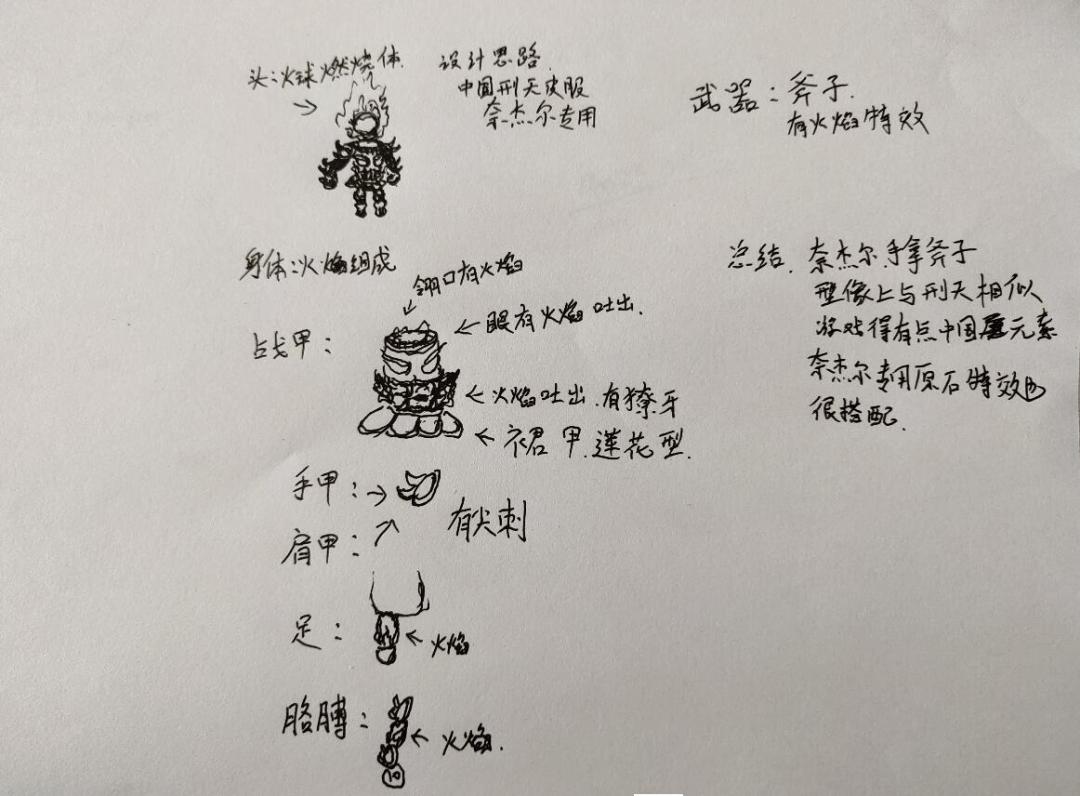 头:火球燃烧体.
设计思路.
中国刑天皮服
奈杰尔专用
武器:斧子.
有火焰特效
身体:火焰组成
领口有火焰
眼有火焰吐出.
战甲:
火焰吐出.有獠牙
裙甲.莲花型.
手甲:
有尖刺
肩甲:
足:
火焰
胳膊:
火焰.
总结.奈杰尔.手拿斧子
型像上与刑天相似
游戏得有点中国元素
奈杰尔专用原石特效也
很搭配.